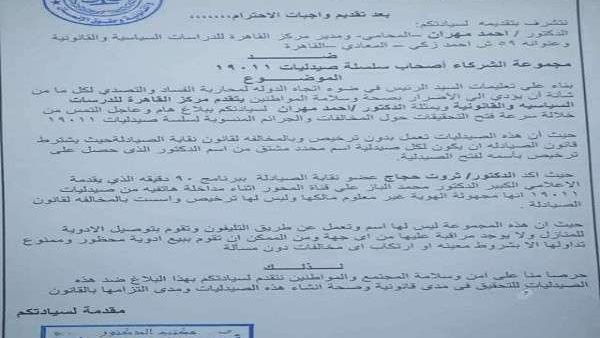 بعد تقديم واجبات الاحترام.......
نتشرف بتقديمه لسيادتكم:
الدكتور / احمد مهران -المحامي- ومدير مركز القاهرة للدراسات السياسية والقانونية
وعنوانه ٥٩ ش احمد زكي - المعادي -القاهرة
ضد
مجموعة الشركاء أصحاب سلسلة صيدليات ١٩٠١١
الموضوع
بناء علي تعليمات السيد الرئيس في ضوء اتجاه الدوله لمحاربة الفساد والتصدي لكل ما من
شانة أن يؤدي الي الأضرار بصحة وسلامة المواطنين يتقدم مركز القاهرة للدرسات
السياسيه والقانونية ويمثله الدكتور /احمد مهران لسيادتكم ببلاغ هام وعاجل التمس من
خلالة سرعة فتح التحقيقات حول المخالفات والجرائم المنسوبة لسلسة صيدليات ١٩٠١١
حيث أن هذه الصيدليات تعمل بدون ترخيص وبالمخالفه لقانون نقابة الصيادلةحيث يشترط
قانون الصيادله ان يكون لكل صيدلية اسم محدد مشتق من اسم الدكتور الذى حصل علي
ترخيص باسمه لفتح الصيدلية.
حيث اكد الدكتور/ ثروت حجاج عضو نقابة الصيادلة ببرنامج ٩٠ دقيقه الذي يقدمة
الاعلامي الكبير الدكتور محمد الباز علي قناة المحور اثناء مداخلة هاتفيه من صيدليات
١٩٠١١ انها مجهولة الهوية غير معلوم مالكها وليس لها ترخيص واسست بالمخالفه لقانون
الصيادلة .
حيث ان هذه المجموعة ليس لها اسم وتعمل عن طريق التليفون وتقوم بتوصيل الادوية
للمنازل ولا يوجد مراقبة عليها من اى جهة ومن الممكن ان تقوم ببيع ادوية محظور وممنوع
تداولها الا بشروط معينه او ارتكاب اى مخالفات دون مسألة
لذلك
حرصا منا على امن وسلامة المجتمع والمواطنين نتقدم لسيادتكم بهذا البلاغ ضد هذه
الصيدليات للتحقيق فى مدى قانونية وصحة انشاء هذه الصيدليات ومدى التزامها بالقانون
مقدمة لسيادتكم
مكتب الدكتور